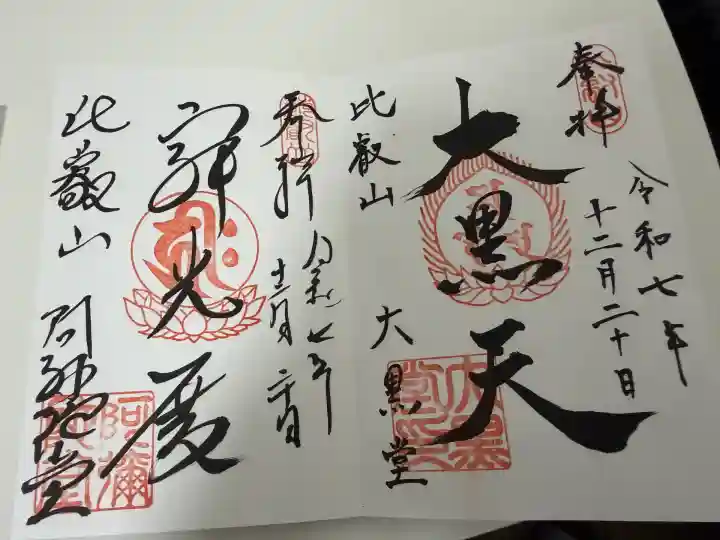 奉拝
令和七年
十二月二十日
大黒天
比叡山
大黒堂
奉拝
令和七年
十二月二十日
光
比叡山
阿弥陀堂
阿彌